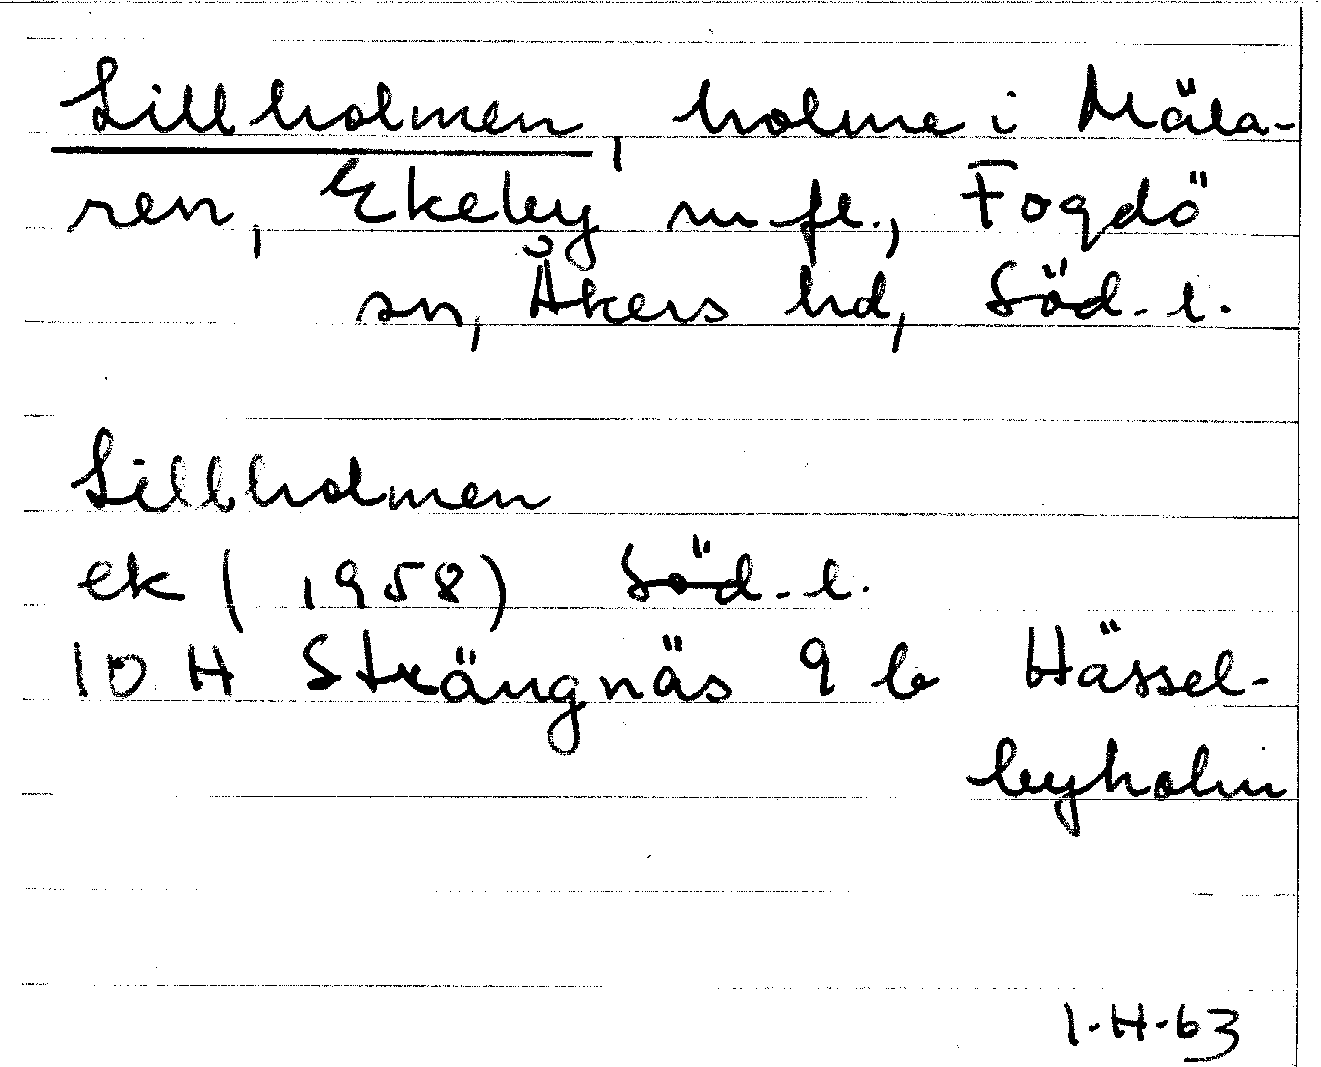 Lillholmen, holme i Mäla-
ren, Ekeby m fl., Fogdö
sn, Åkers hd, Söd. l.
Lillholmen
ek (1958) Söd. l.
10 H Strängnäs 9 b Hässel-
byholm
I.H.63